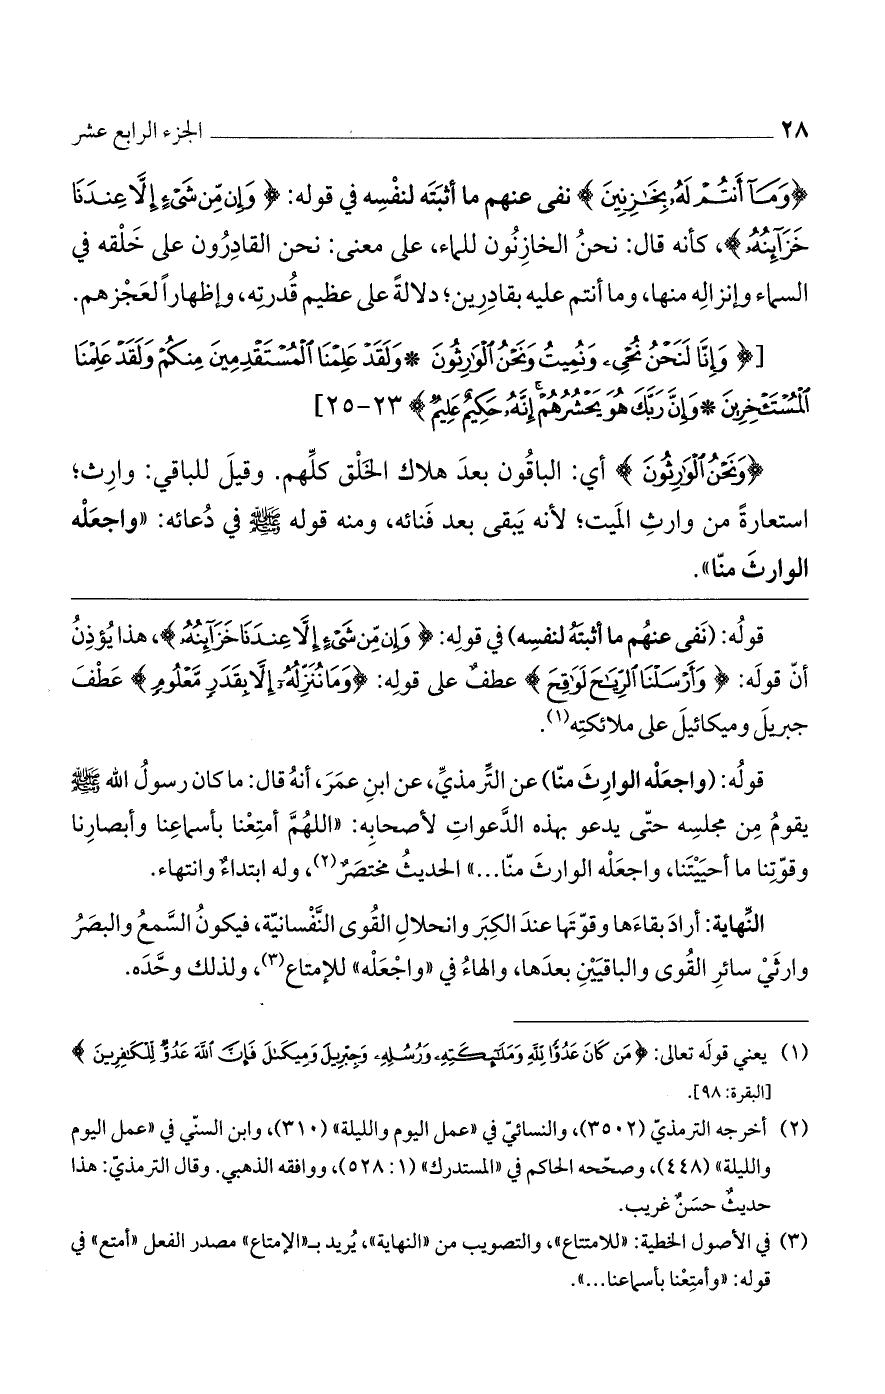 ٢٨ ــــــــــــــــــــــــــــــــــــــــــــــــــــــــــــ الجزء الرابع عشر
﴿وَمَآ أَنتُمْ لَهُۥ بِخَـٰزِنِينَ﴾ نفى عنهم ما أثبتَه لنفْسِه في قوله: ﴿وَإِن مِّن شَىْءٍ إِلَّا عِندَنَا
خَزَآئِنُهُۥ﴾، كأنه قال: نحنُ الخازنُون للماء، على معنى: نحن القادِرُون على خَلْقه في
السماء وإنزالِه منها، وما أنتم عليه بقادِرِين؛ دلالةً على عظيم قُدرتِه، وإظهاراً لعَجْزهم.
[﴿وَإِنَّا لَنَحْنُ نُحْىِۦ وَنُمِيتُ وَنَحْنُ ٱلْوَٰرِثُونَ * وَلَقَدْ عَلِمْنَا ٱلْمُسْتَقْدِمِينَ مِنكُمْ وَلَقَدْ عَلِمْنَا
ٱلْمُسْتَـْٔخِرِينَ * وَإِنَّ رَبَّكَ هُوَ يَحْشُرُهُمْ ۚ إِنَّهُۥ حَكِيمٌ عَلِيمٌ﴾ ٢٣-٢٥]
﴿وَنَحْنُ ٱلْوَٰرِثُونَ﴾ أي: الباقُون بعدَ هلاك الخَلْق كلِّهم. وقيلَ للباقي: وارِث؛
استعارةً من وارثِ الميت؛ لأنه يَبقى بعد فَنائه، ومنه قوله ﷺ في دُعائه: «واجعَلْه
الوارثَ منّا».
قولُه: (نَفى عنهُم ما أثبتَهُ لنفسِه) في قولِه: ﴿وَإِن مِّن شَىْءٍ إِلَّا عِندَنَا خَزَآئِنُهُۥ﴾، هذا يُؤذِنُ
أنّ قولَه: ﴿وَأَرْسَلْنَا ٱلرِّيَـٰحَ لَوَٰقِحَ﴾ عطفٌ على قولِه: ﴿وَمَا نُنَزِّلُهُۥٓ إِلَّا بِقَدَرٍ مَّعْلُومٍ﴾ عَطْفَ
جبريلَ وميكائيلَ على ملائكتِه(١).
قولُه: (واجعَلْه الوارِثَ منّا) عن التِّرمذيِّ، عن ابنِ عمَرَ، أنهُ قال: ما كان رسولُ الله ﷺ
يقومُ مِن مجلسِه حتّى يدعو بهذه الدَّعواتِ لأصحابِه: «اللهُمَّ أمتِعْنا بأسماعِنا وأبصارِنا
وقوّتِنا ما أحيَيْتَنا، واجعَلْه الوارثَ منّا...» الحديثُ مختصَرٌ(٢)، وله ابتداءٌ وانتهاء.
النِّهاية: أرادَ بقاءَها وقوّتَها عندَ الكِبَر وانحلالِ القُوى النَّفْسانيّة، فيكونُ السَّمعُ والبصَرُ
وارثَيْ سائرِ القُوى والباقيَيْنِ بعدَها، والهاءُ في «واجْعَلْه» للإمتاع(٣)، ولذلك وحَّدَه.
(١) يعني قولَه تعالى: ﴿مَن كَانَ عَدُوًّا لِّلَّهِ وَمَلَـٰٓئِكَتِهِۦ وَرُسُلِهِۦ وَجِبْرِيلَ وَمِيكَىٰلَ فَإِنَّ ٱللَّهَ عَدُوٌّ لِّلْكَـٰفِرِينَ﴾
[البقرة: ٩٨].
(٢) أخرجه الترمذيّ (٣٥٠٢)، والنسائيّ في «عمل اليوم والليلة» (٣١٠)، وابن السنّي في «عمل اليوم
والليلة» (٤٤٨)، وصحّحه الحاكم في «المستدرك» (١: ٥٢٨)، ووافقه الذهبي. وقال الترمذيّ: هذا
حديثٌ حسَنٌ غريب.
(٣) في الأصول الخطية: «للامتتاع»، والتصويب من «النهاية»، يُريد بـ«الإمتاع» مصدر الفعل «أمتع» في
قوله: «وأمتِعْنا بأسماعنا...».